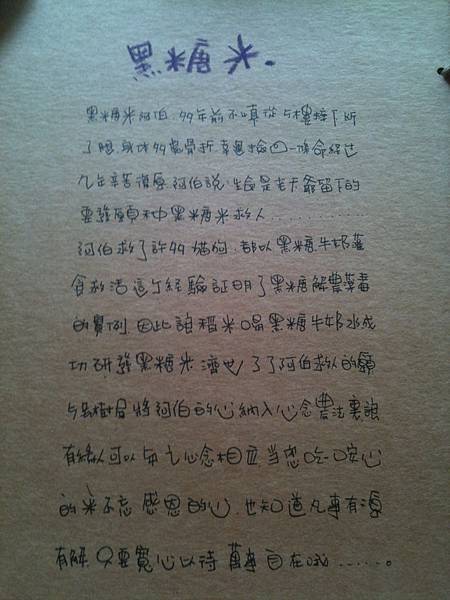 黑糖米.
黑糖米阿伯.99年前不慎從5樓摔下斷
了腿.身体多處骨折.幸運撿回一條命經过
九年辛苦復原.阿伯說.生命是老天爺留下的
要發願种黑糖米救人............
阿伯救了許多貓狗.都以黑糖.牛奶灌
食救活這个經驗証明了黑糖解農藥毒
的實例.因此讓稻米喝黑糖牛奶水成
功研發黑糖米濟世了了阿伯救人的願
将阿伯的心納入心念農法裏讓
有緣人可以与之心念相应当您吃一口安心
的米不忘感恩的心.也知道凡事有源
有解.只要寬心以待萬事自在哦......。